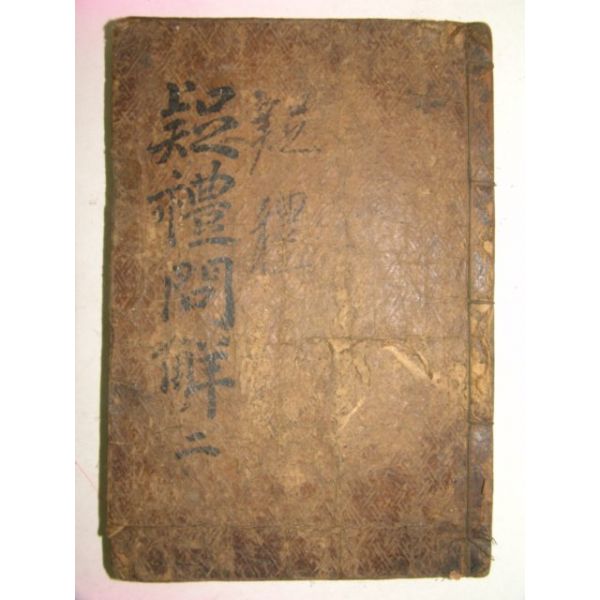 疑禮
疑禮問解二